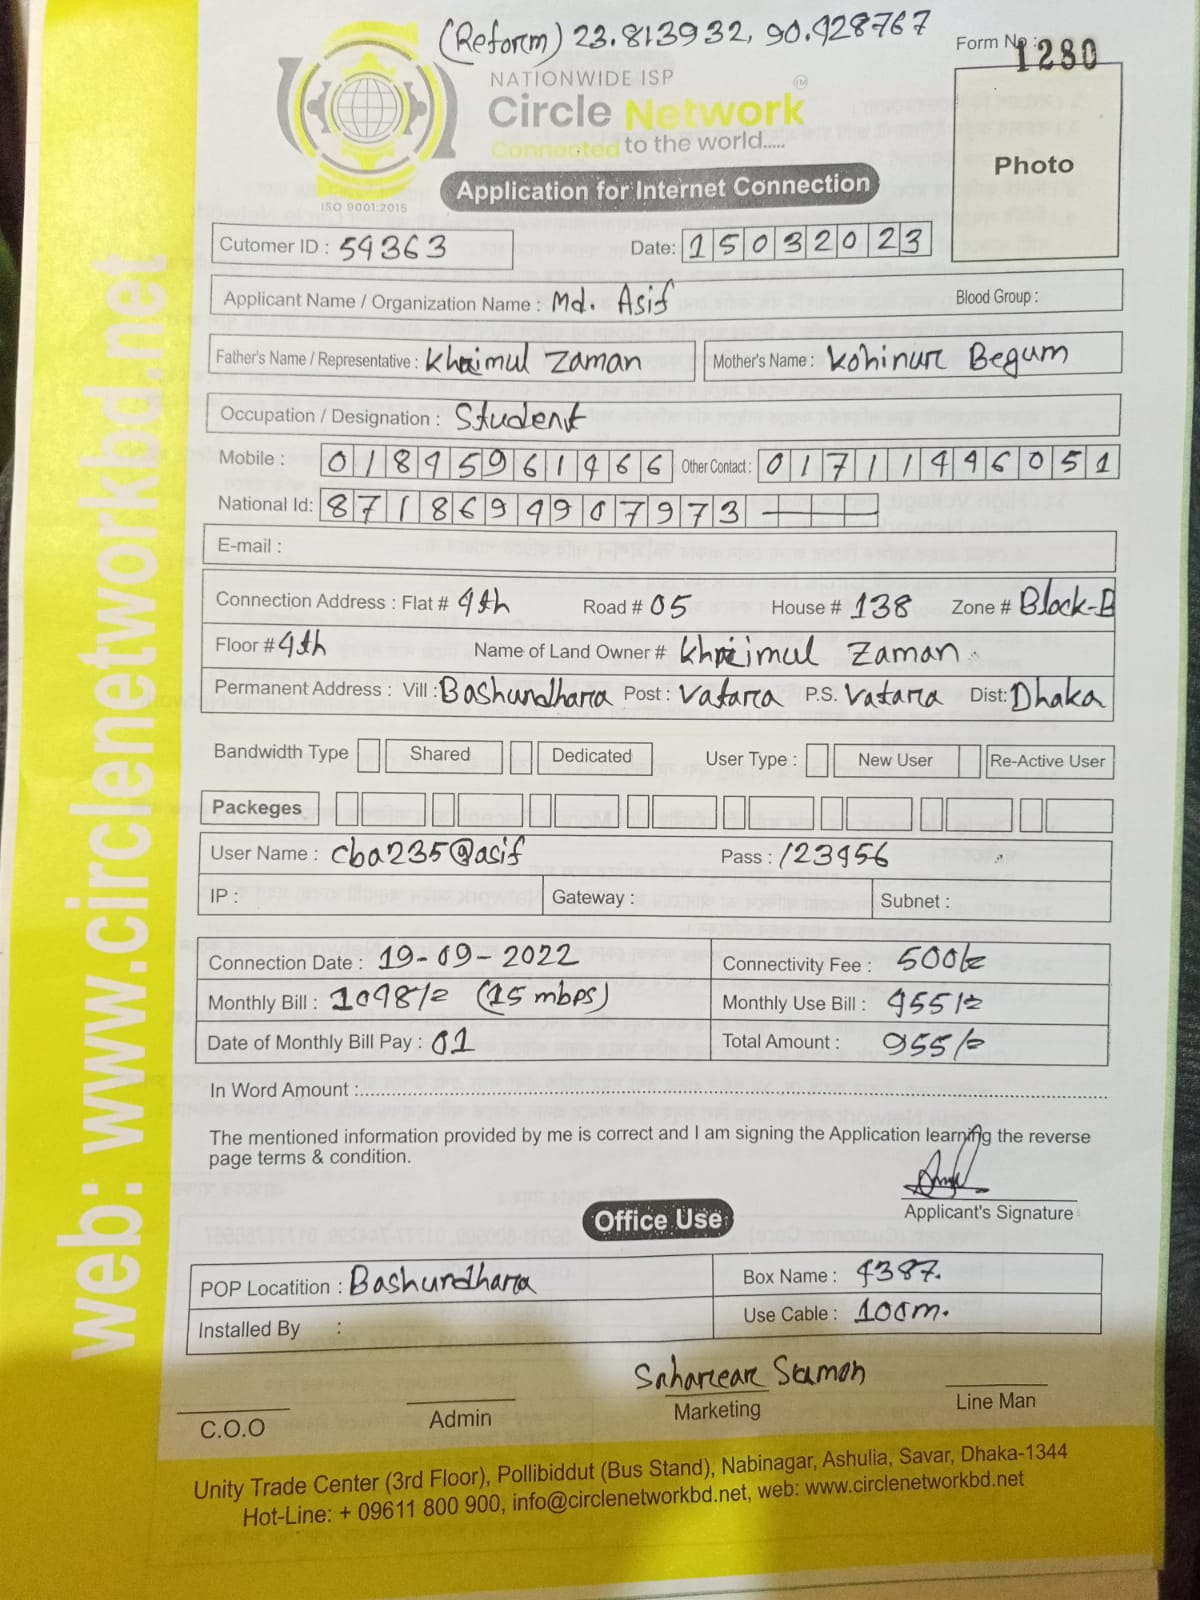 (Reform) 23.813932, 90.428767
Form No : 1280
NATIONWIDE ISP
Circle Network TM
Connected to the world.....
ISO 9001:2015
Photo
Application for Internet Connection
Cutomer ID : 54363 Date: 15032023
Applicant Name / Organization Name : Md. Asif Blood Group :
Father's Name / Representative : Khaimul Zaman Mother's Name : Kohinur Begum
Occupation / Designation : Student
Mobile : 01845961466 Other Contact : 01711446051
National Id: 8718694907973
E-mail :
Connection Address : Flat # 4th Road # 05 House # 138 Zone # Block-B
Floor # 4th Name of Land Owner # Khaimul Zaman
Permanent Address : Vill : Bashundhara Post : Vatara P.S. Vatara Dist: Dhaka
Bandwidth Type Shared Dedicated User Type : New User Re-Active User
Packeges
User Name : cba235@asif Pass : 123456
IP : Gateway : Subnet :
Connection Date : 19-09-2022 Connectivity Fee : 500/=
Monthly Bill : 1048/= (15 mbps) Monthly Use Bill : 455/=
Date of Monthly Bill Pay : 01 Total Amount : 955/=
In Word Amount :
The mentioned information provided by me is correct and I am signing the Application learning the reverse
page terms & condition.
Applicant's Signature
Office Use
POP Locatition : Bashundhara Box Name : 4387.
Installed By : Use Cable : 100m.
C.O.O Admin Marketing Line Man
Unity Trade Center (3rd Floor), Pollibiddut (Bus Stand), Nabinagar, Ashulia, Savar, Dhaka-1344
Hot-Line: + 09611 800 900, info@circlenetworkbd.net, web: www.circlenetworkbd.net
web: www.circlenetworkbd.net